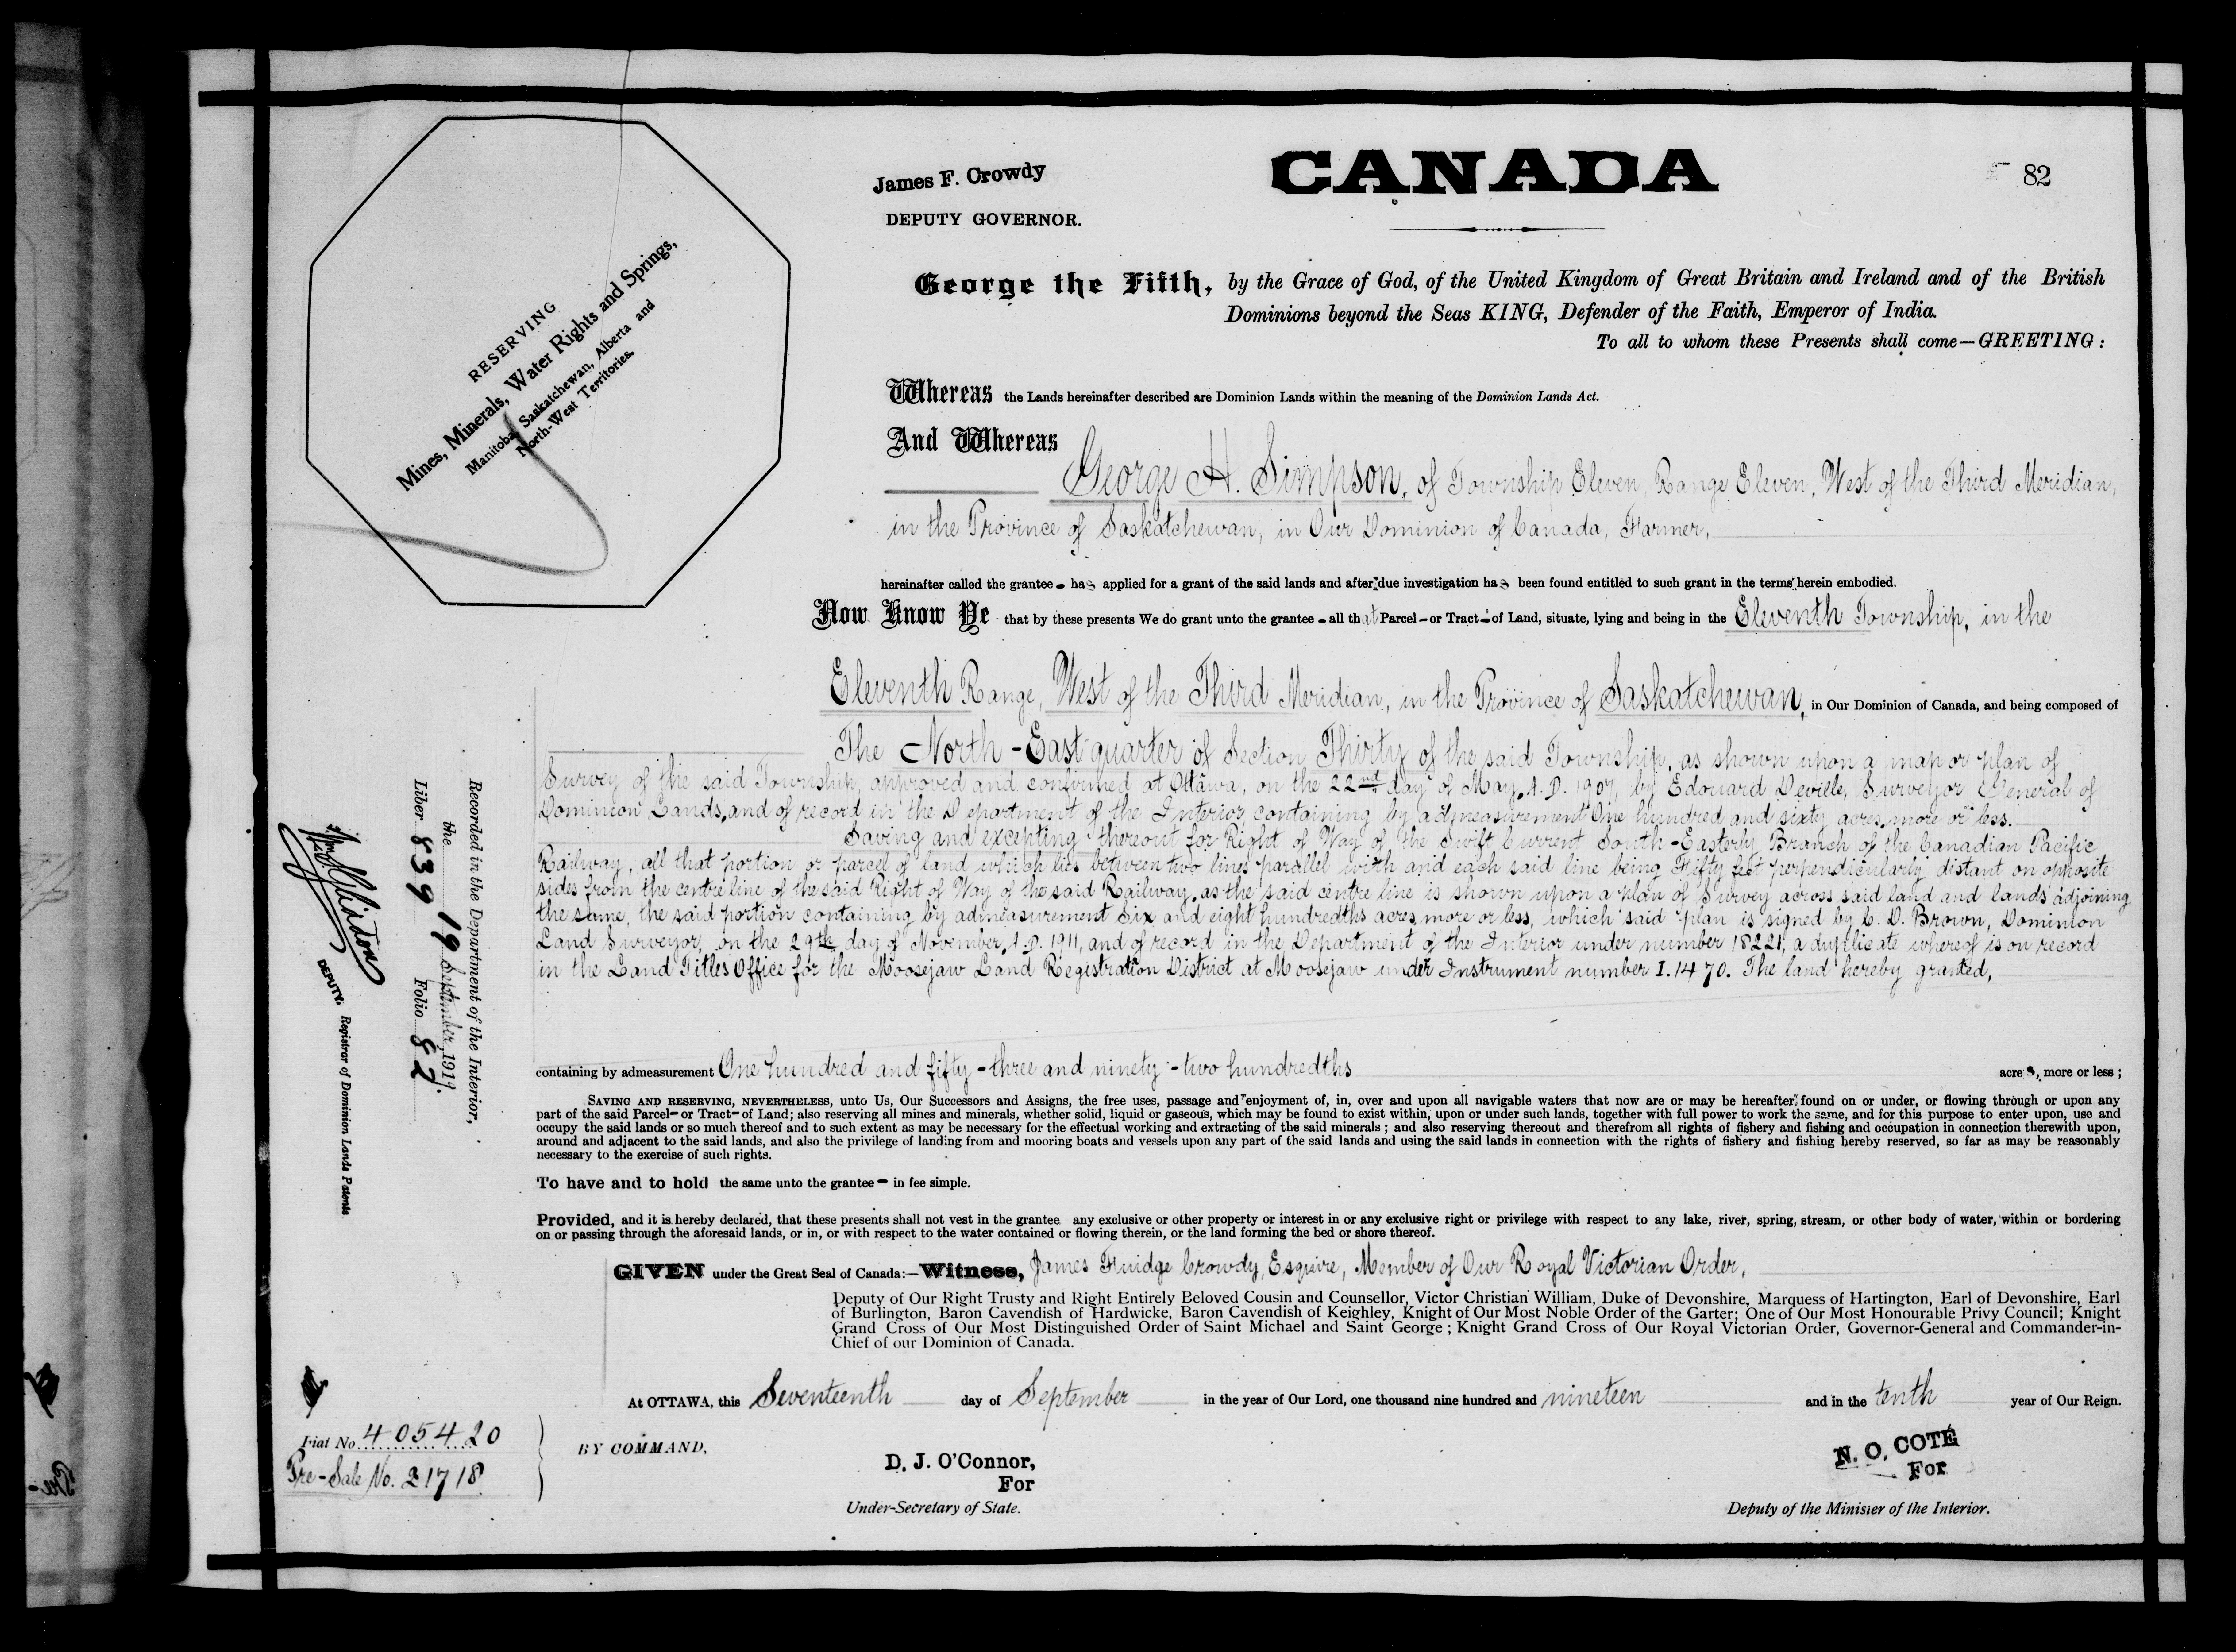 CANADA
82
James F. Crowdy
DEPUTY GOVERNOR.
RESERVING
Mines, Minerals, Water Rights and Springs,
Manitoba, Saskatchewan, Alberta and
North-West Territories.
George the Fifth, by the Grace of God, of the United Kingdom of Great Britain and Ireland and of the British
Dominions beyond the Seas KING, Defender of the Faith, Emperor of India.
To all to whom these Presents shall come—GREETING:
Whereas the Lands hereinafter described are Dominion Lands within the meaning of the Dominion Lands Act.
And Whereas
George H. Simpson, of Township Eleven, Range Eleven, West of the Third Meridian,
in the Province of Saskatchewan, in Our Dominion of Canada, Farmer,
hereinafter called the grantee - has applied for a grant of the said lands and after due investigation has been found entitled to such grant in the terms herein embodied.
Now Know Ye that by these presents We do grant unto the grantee - all that Parcel - or Tract - of Land, situate, lying and being in the Eleventh Township, in the
Eleventh Range, West of the Third Meridian, in the Province of Saskatchewan, in Our Dominion of Canada, and being composed of
The North-East quarter of Section Thirty of the said Township, as shown upon a map or plan of
Survey of the said Township, approved and confirmed at Ottawa, on the 22nd day of May, A.D. 1907, by Edouard Deville, Surveyor General of
Dominion Lands, and of record in the Department of the Interior, containing by admeasurement One hundred and sixty acres, more or less.
Saving and excepting thereout for Right of Way of the Swift Current South-Easterly Branch of the Canadian Pacific
Railway, all that portion or parcel of land which lies between two lines parallel with and each said line being Fifty feet perpendicularly distant on opposite
sides from the centre line of the said Right of Way of the said Railway, as the said centre line is shown upon a plan of Survey across said land and lands adjoining
the same, the said portion containing by admeasurement Six and eight hundredths acres, more or less, which said plan is signed by C. D. Brown, Dominion
Land Surveyor, on the 29th day of November, A.D. 1911, and of record in the Department of the Interior under number 18221, a duplicate whereof is on record
in the Land Titles Office for the Moosejaw Land Registration District at Moosejaw under Instrument number I.1470. The land hereby granted,
containing by admeasurement One hundred and fifty-three and ninety-two hundredths acres, more or less;
SAVING AND RESERVING, NEVERTHELESS, unto Us, Our Successors and Assigns, the free uses, passage and enjoyment of, in, over and upon all navigable waters that now are or may be hereafter found on or under, or flowing through or upon any
part of the said Parcel- or Tract- of Land; also reserving all mines and minerals, whether solid, liquid or gaseous, which may be found to exist within, upon or under such lands, together with full power to work the same, and for this purpose to enter upon, use and
occupy the said lands or so much thereof and to such extent as may be necessary for the effectual working and extracting of the said minerals; and also reserving thereout and therefrom all rights of fishery and fishing and occupation in connection therewith upon,
around and adjacent to the said lands, and also the privilege of landing from and mooring boats and vessels upon any part of the said lands and using the said lands in connection with the rights of fishery and fishing hereby reserved, so far as may be reasonably
necessary to the exercise of such rights.
To have and to hold the same unto the grantee - in fee simple.
Provided, and it is hereby declared, that these presents shall not vest in the grantee any exclusive or other property or interest in or any exclusive right or privilege with respect to any lake, river, spring, stream, or other body of water, within or bordering
on or passing through the aforesaid lands, or in, or with respect to the water contained or flowing therein, or the land forming the bed or shore thereof.
GIVEN under the Great Seal of Canada:—Witness, James Fuidge Crowdy, Esquire, Member of Our Royal Victorian Order,
Deputy of Our Right Trusty and Right Entirely Beloved Cousin and Counsellor, Victor Christian William, Duke of Devonshire, Marquess of Hartington, Earl of Devonshire, Earl
of Burlington, Baron Cavendish of Hardwicke, Baron Cavendish of Keighley, Knight of Our Most Noble Order of the Garter; One of Our Most Honourable Privy Council; Knight
Grand Cross of Our Most Distinguished Order of Saint Michael and Saint George; Knight Grand Cross of Our Royal Victorian Order, Governor-General and Commander-in-
Chief of our Dominion of Canada.
At OTTAWA, this Seventeenth day of September in the year of Our Lord, one thousand nine hundred and nineteen and in the tenth year of Our Reign.
BY COMMAND,
D. J. O'Connor,
For
Under-Secretary of State.
N. O. COTÉ
For
Deputy of the Minister of the Interior.
Recorded in the Department of the Interior,
the 19 September, 1919.
Liber 839 Folio 82
DEPUTY. Registrar of Dominion Lands Patents
Fiat No. 405420
Pre-Sale No. 21718